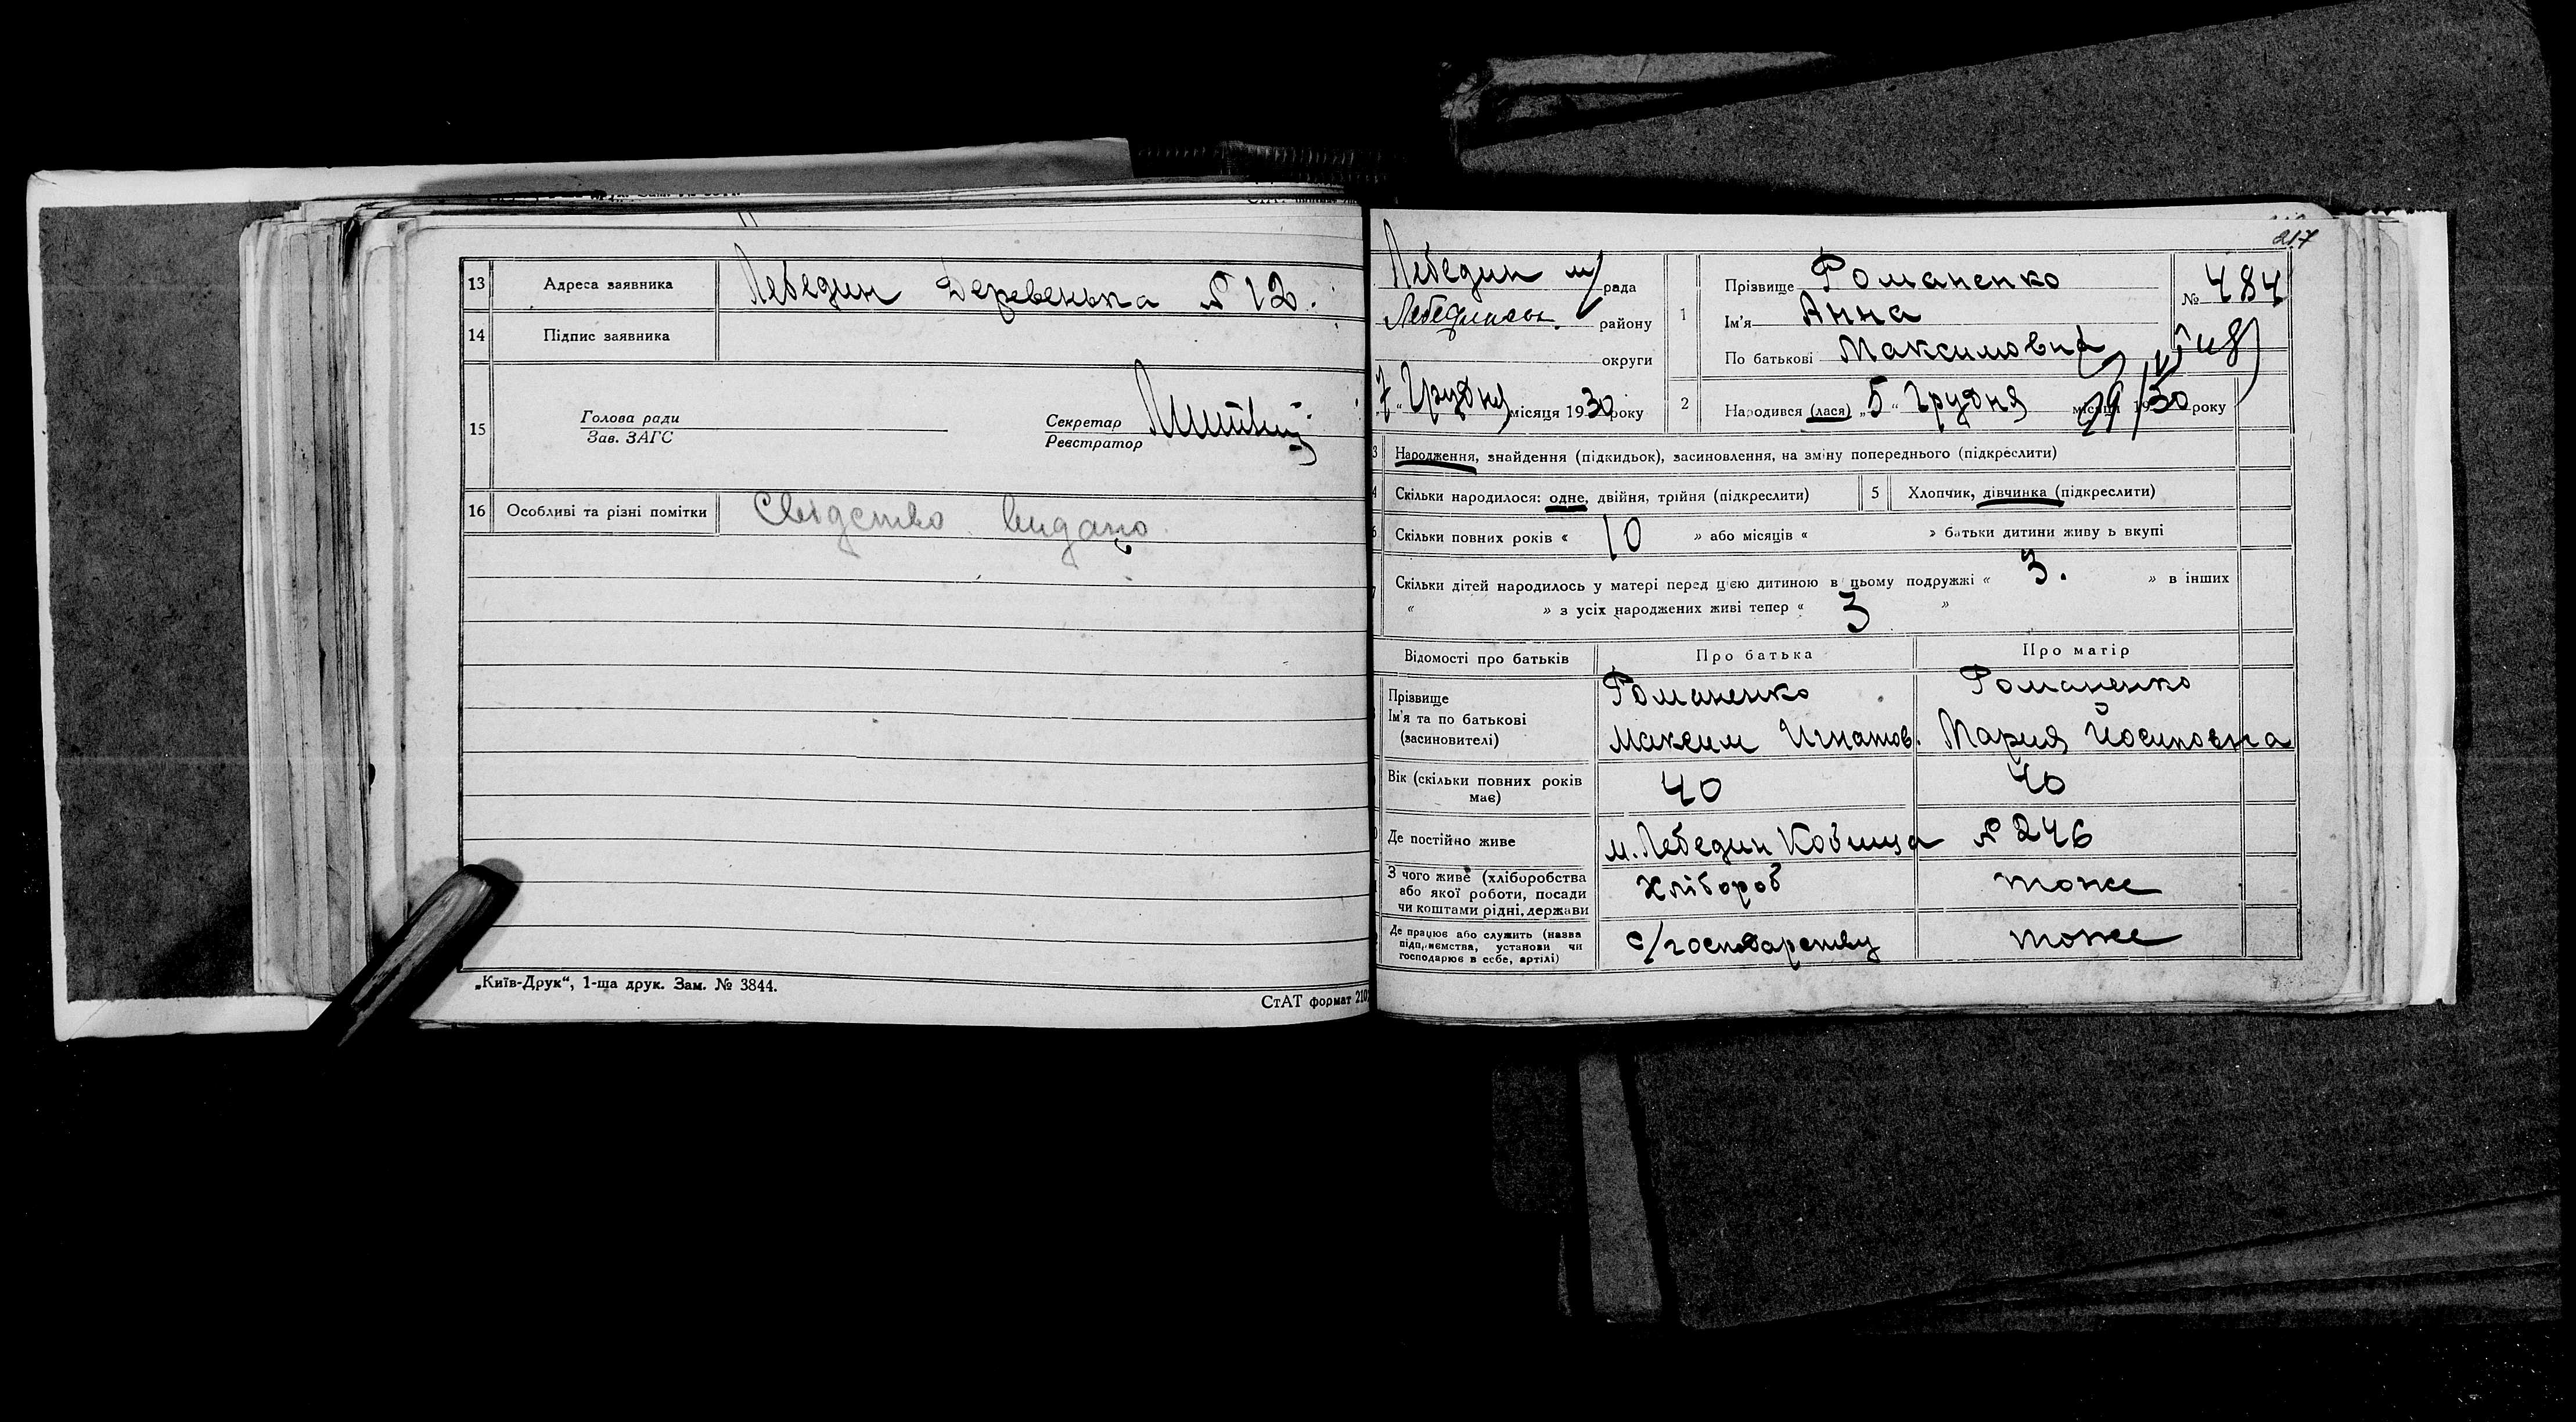 13 Адреса заявника Лебедин Деревенька № 12.
14 Підпис заявника
15 Голова ради
Зав. ЗАГС
Секретар
Реєстратор
16 Особливі та різні помітки Свідство видано
„Київ-Друк“, 1-ша друк. Зам. № 3844.
СтАТ формат 210
217
Лебедин м/рада
Лебединськ. району
округи
7 “ Грудня місяця 1930 року
1 Прізвище Романенко
Ім'я Анна
По батькові Максимовна
№ 484
2 Народився (лася) „5“ Грудня місяця 1930 року
3 Народження, знайдення (підкидьок), засиновлення, на зміну попереднього (підкреслити)
4 Скільки народилося: одне, двійня, трійня (підкреслити) 5 Хлопчик, дівчинка (підкреслити)
6 Скільки повних років « 10 » або місяців « » батьки дитини живу ь вкупі
7 Скільки дітей народилось у матері перед цією дитиною в цьому подружжі « 3. » в інших
« » з усіх народжених живі тепер « 3 »
Відомості про батьків Про батька Про матір
Прізвище Романенко Романенко
Ім'я та по батькові Максим Игнатов. Мария Йосиповна
(засновителі)
Вік (скільки повних років має) 40 40
Де постійно живе м. Лебедин Кобища № 246
З чого живе (хліборобства
або якої роботи, посади
чи коштами рідні, держави Хлібороб тоже
Де працює або служить (назва
підприємства, установи чи
господарює в себе, артілі) с/господарству тоже